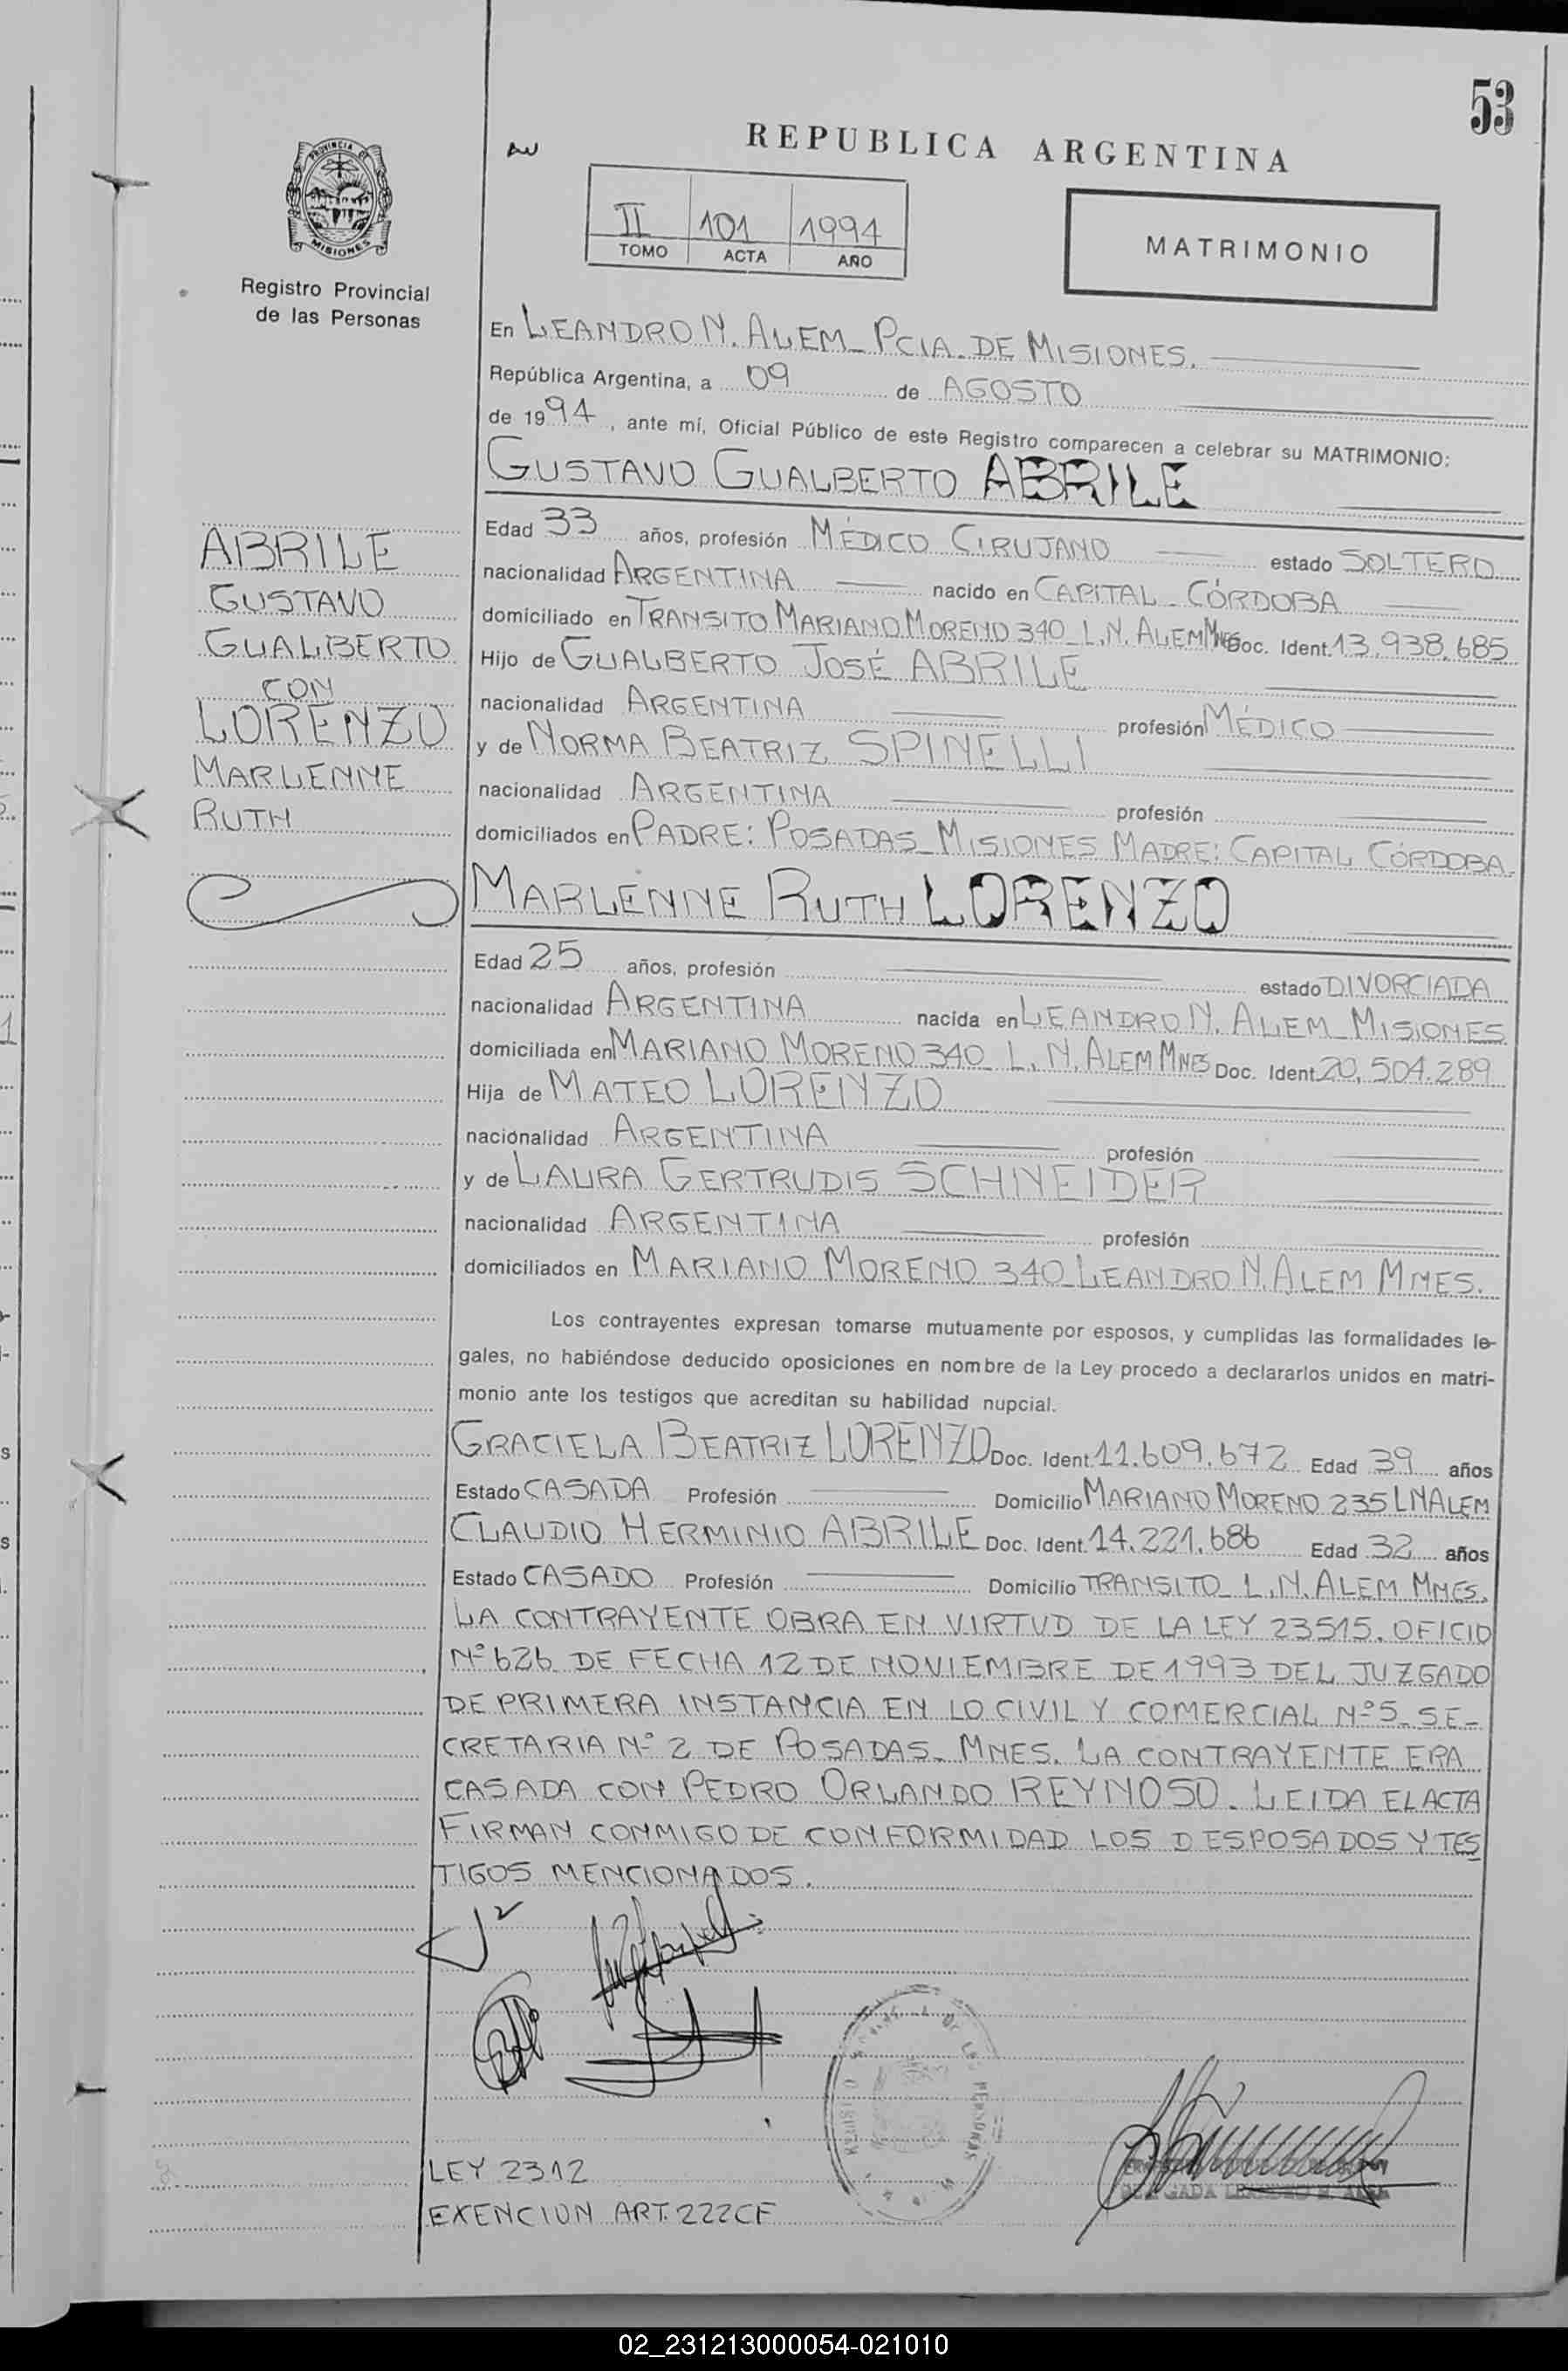 53
REPUBLICA ARGENTINA
PROVINCIA DE
MISIONES
Registro Provincial
de las Personas
II 101 1994
TOMO ACTA AÑO
MATRIMONIO
En LEANDRO N. ALEM_ PCIA. DE MISIONES.
República Argentina, a 09 de AGOSTO
de 1994, ante mí, Oficial Público de este Registro comparecen a celebrar su MATRIMONIO:
GUSTAVO GUALBERTO ABRILE
Edad 33 años, profesión MÉDICO CIRUJANO estado SOLTERO
nacionalidad ARGENTINA nacido en CAPITAL_CÓRDOBA
domiciliado en TRANSITO MARIANO MORENO 340_L.N. ALEM MNES Doc. Ident. 13.938.685
Hijo de GUALBERTO JOSÉ ABRILE
nacionalidad ARGENTINA profesión MÉDICO
y de NORMA BEATRIZ SPINELLI
nacionalidad ARGENTINA profesión
domiciliados en PADRE: POSADAS_MISIONES MADRE: CAPITAL CÓRDOBA.
ABRILE
GUSTAVO
GUALBERTO
CON
LORENZO
MARLENNE
RUTH
MARLENNE RUTH LORENZO
Edad 25 años, profesión estado DIVORCIADA
nacionalidad ARGENTINA nacida en LEANDRO N. ALEM_MISIONES
domiciliada en MARIANO MORENO 340_ L.N. ALEM MNES Doc. Ident. 20.504.289
Hija de MATEO LORENZO
nacionalidad ARGENTINA profesión
y de LAURA GERTRUDIS SCHNEIDER
nacionalidad ARGENTINA profesión
domiciliados en MARIANO MORENO 340_LEANDRO N. ALEM MNES.
Los contrayentes expresan tomarse mutuamente por esposos, y cumplidas las formalidades le-
gales, no habiéndose deducido oposiciones en nombre de la Ley procedo a declararlos unidos en matri-
monio ante los testigos que acreditan su habilidad nupcial.
GRACIELA BEATRIZ LORENZO Doc. Ident. 11.609.672 Edad 39 años
Estado CASADA Profesión Domicilio MARIANO MORENO 235 LNALEM
CLAUDIO HERMINIO ABRILE Doc. Ident. 14.221.686 Edad 32 años
Estado CASADO Profesión Domicilio TRANSITO_ L.N. ALEM MNES.
LA CONTRAYENTE OBRA EN VIRTUD DE LA LEY 23515. OFICIO
Nº 626 DE FECHA 12 DE NOVIEMBRE DE 1993 DEL JUZGADO
DE PRIMERA INSTANCIA EN LO CIVIL Y COMERCIAL Nº 5_ SE-
CRETARIA Nº 2 DE POSADAS_ MNES. LA CONTRAYENTE ERA
CASADA CON PEDRO ORLANDO REYNOSO. LEIDA EL ACTA
FIRMAN CONMIGO DE CONFORMIDAD LOS DESPOSADOS Y TES
TIGOS MENCIONADOS.
LEY 2312
EXENCION ART. 222CF
02_231213000054-021010